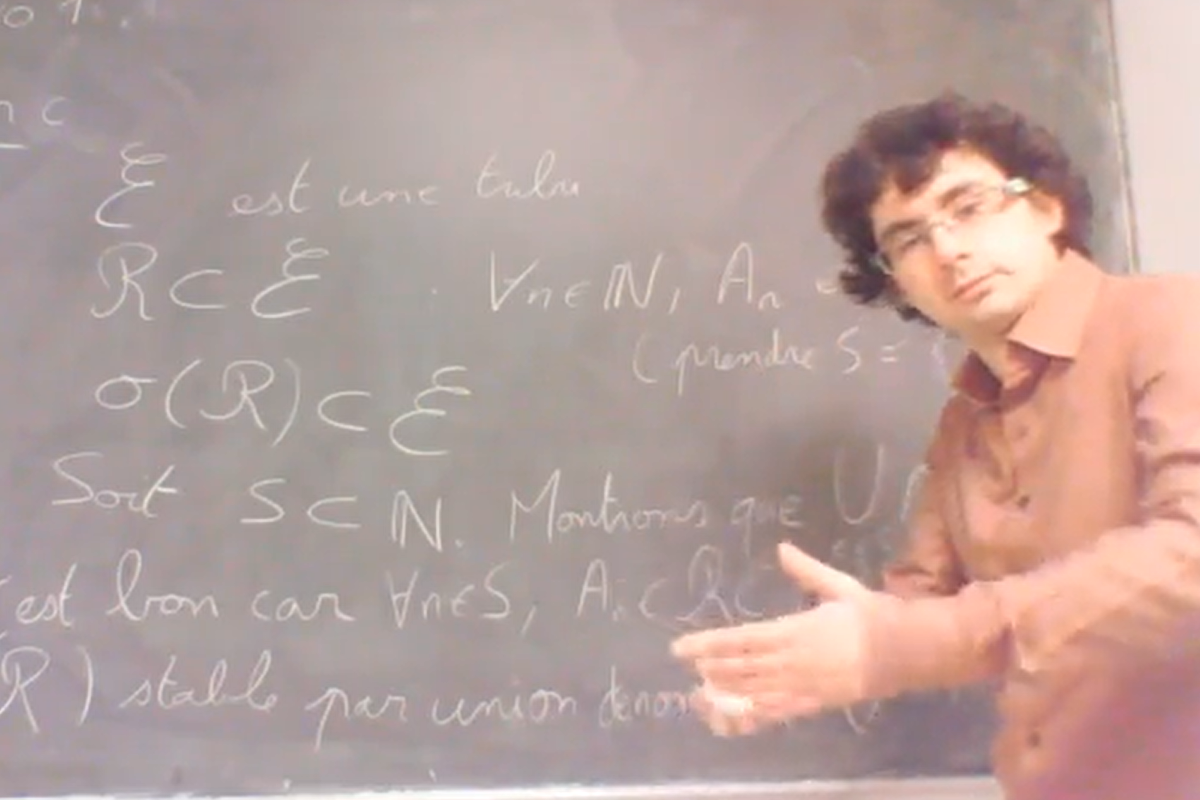 o 1.
n c
ℰ est une tribu
ℛ ⊂ ℰ . ∀n∈ℕ, Aₙ
(prendre S =
σ(ℛ) ⊂ ℰ
Soit S ⊂ ℕ. Montrons que ∪
est bon car ∀n∈S, Aₙ ⊂ ℛ ⊂
ℛ) stable par union